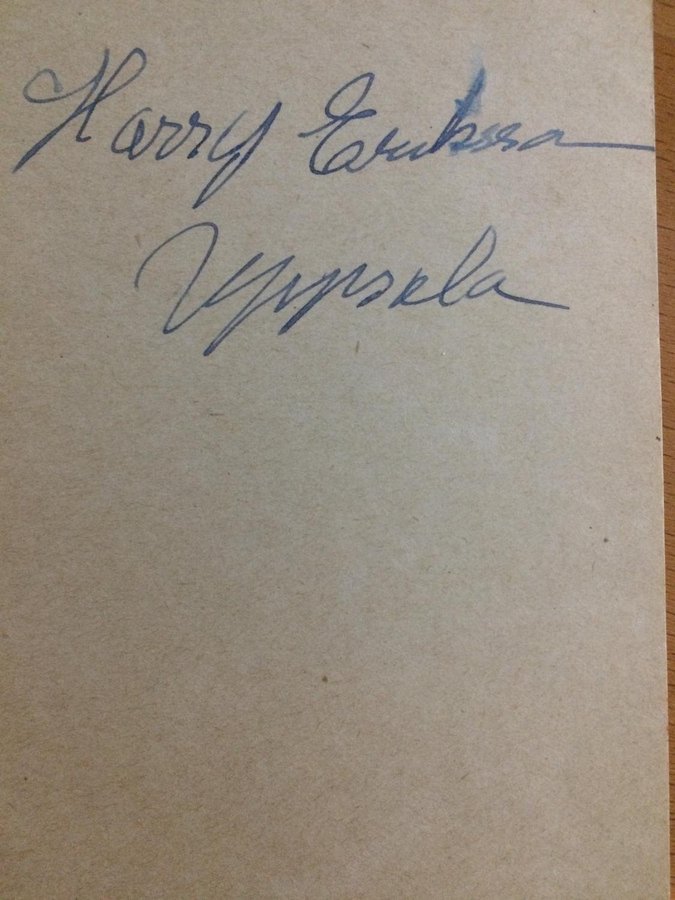 Harry Eriksson
Uppsala